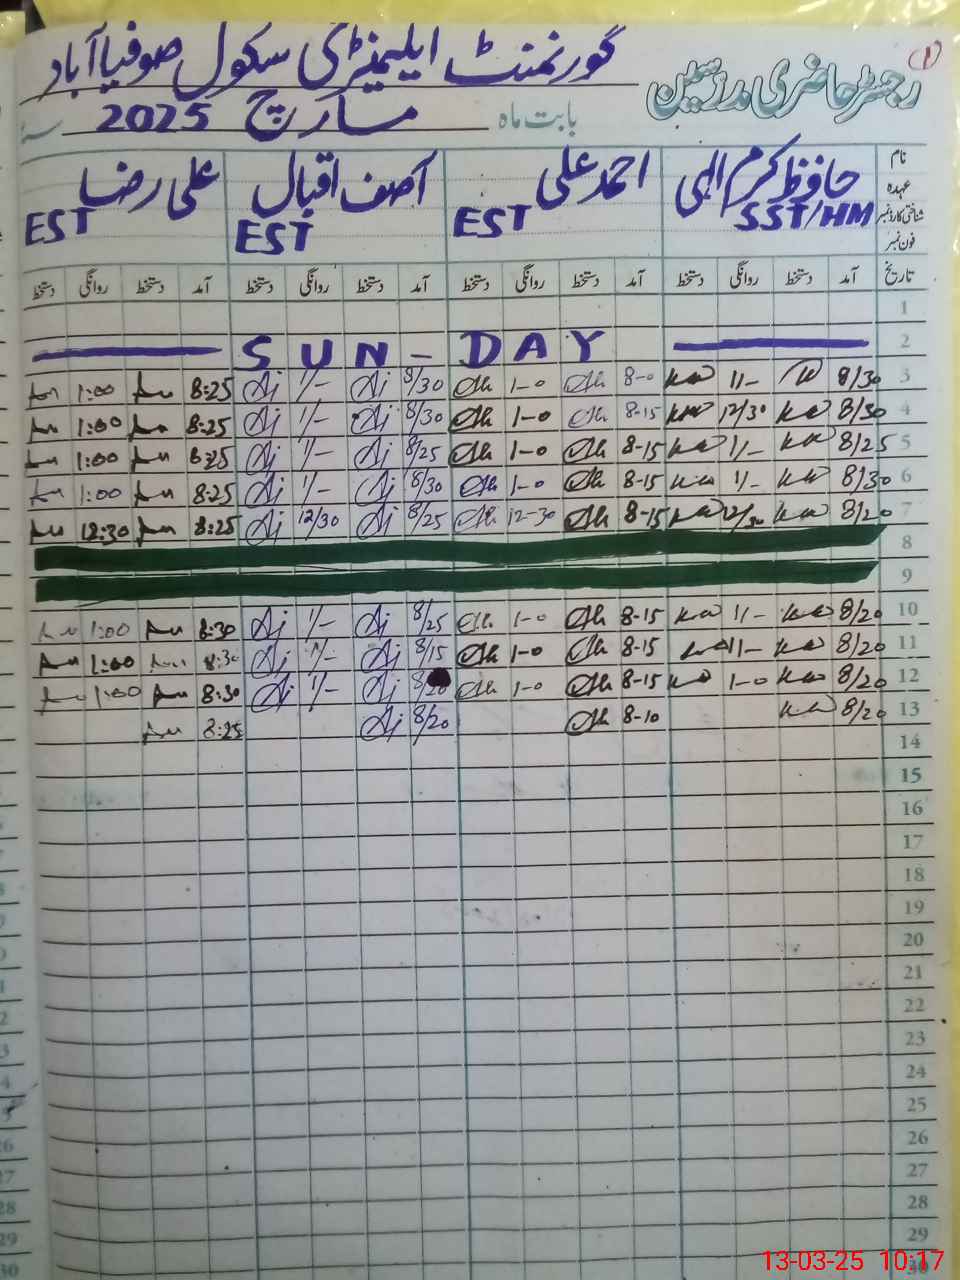 رجسٹر حاضری مدرسین
گورنمنٹ ایلیمنٹری سکول صوفیاآباد
بابت ماہ مارچ 2025
نام عہدہ شناختی کارڈ نمبر فون نمبر
حافظ کرم الہی SST/HM
احمد علی EST
آصف اقبال EST
علی رضا EST
تاریخ آمد دستخط روانگی دستخط آمد دستخط روانگی دستخط آمد دستخط روانگی دستخط آمد دستخط روانگی دستخط
1
2 SUN-DAY
3 8/30 1/- 8-0 1-0 8/30 1/- 8:25 1:00
4 8/30 12/30 8-15 1-0 8/30 1/- 8:25 1:00
5 8/25 1/- 8-15 1-0 8/25 1/- 8:25 1:00
6 8/30 1/- 8-15 1-0 8/30 1/- 8:25 1:00
7 8/20 12/30 8-15 12-30 8/25 12/30 8:25 12:30
8
9
10 8/20 1/- 8-15 1-0 8/25 1/- 8:30 1:00
11 8/20 1/- 8-15 1-0 8/15 1/- 8:30 1:00
12 8/20 1-0 8-15 1-0 8/20 1/- 8:30 1:00
13 8/20 8-10 8/20 8:25
14
15
16
17
18
19
20
21
22
23
24
25
26
27
28
29
30
13-03-25 10:17